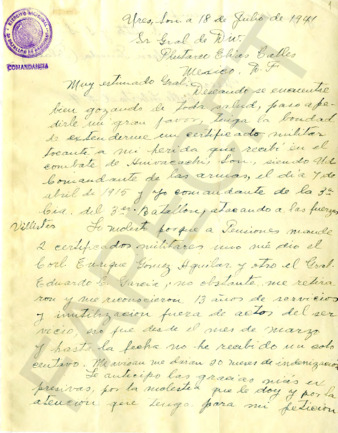 COMANDANCIA
Ures, Son. a 18 de Julio de 1941
Sr Gral de D.
Plutarco Elías Calles
Mexico, D. F.
Muy estimado Gral:
Deseando se encuentre
bien gozando de toda salud, paso a pe-
dirle un gran favor, tenga la bondad
de extenderme un certificado militar
tocante a mi herida que recibí en el
combate de Son, siendo Ud
Comandante de las armas, el dia 7 de
abril de 1915 y yo comandante de la 3ª
Cia. del 3er Batallon, atacando a las fuerzas
Villistas. Le molesto porque a Pensiones mandé
2 certificados militares uno me dio el
Corl Enrique Gomez Aguilar y otro el Gral.
Eduardo C. García, no obstante me retira
ron y me reconocieron 13 años de servicios
y inutilizacion fuera de actos del ser
vicio, fue desde el mes de marzo
y hasta la fecha no he recibido un solo
centavo. Me avisan me darán 20 meses de indemnizacion
Le anticipo las gracias mias ex
presivas, por la molestia que le doy y por la
atencion que tenga para mi peticion